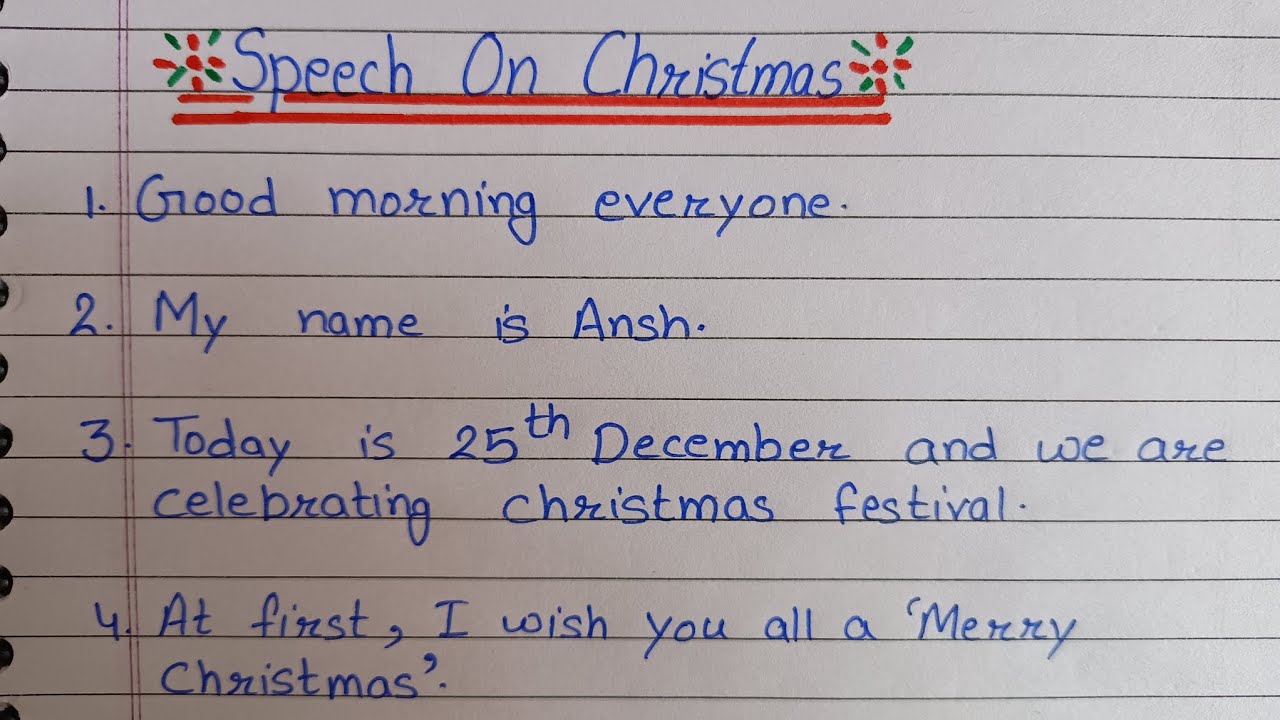 Speech On Christmas
1. Good morning everyone.
2. My name is Ansh.
3. Today is 25th December and we are
celebrating christmas festival.
4. At first, I wish you all a 'Merry
Christmas'.